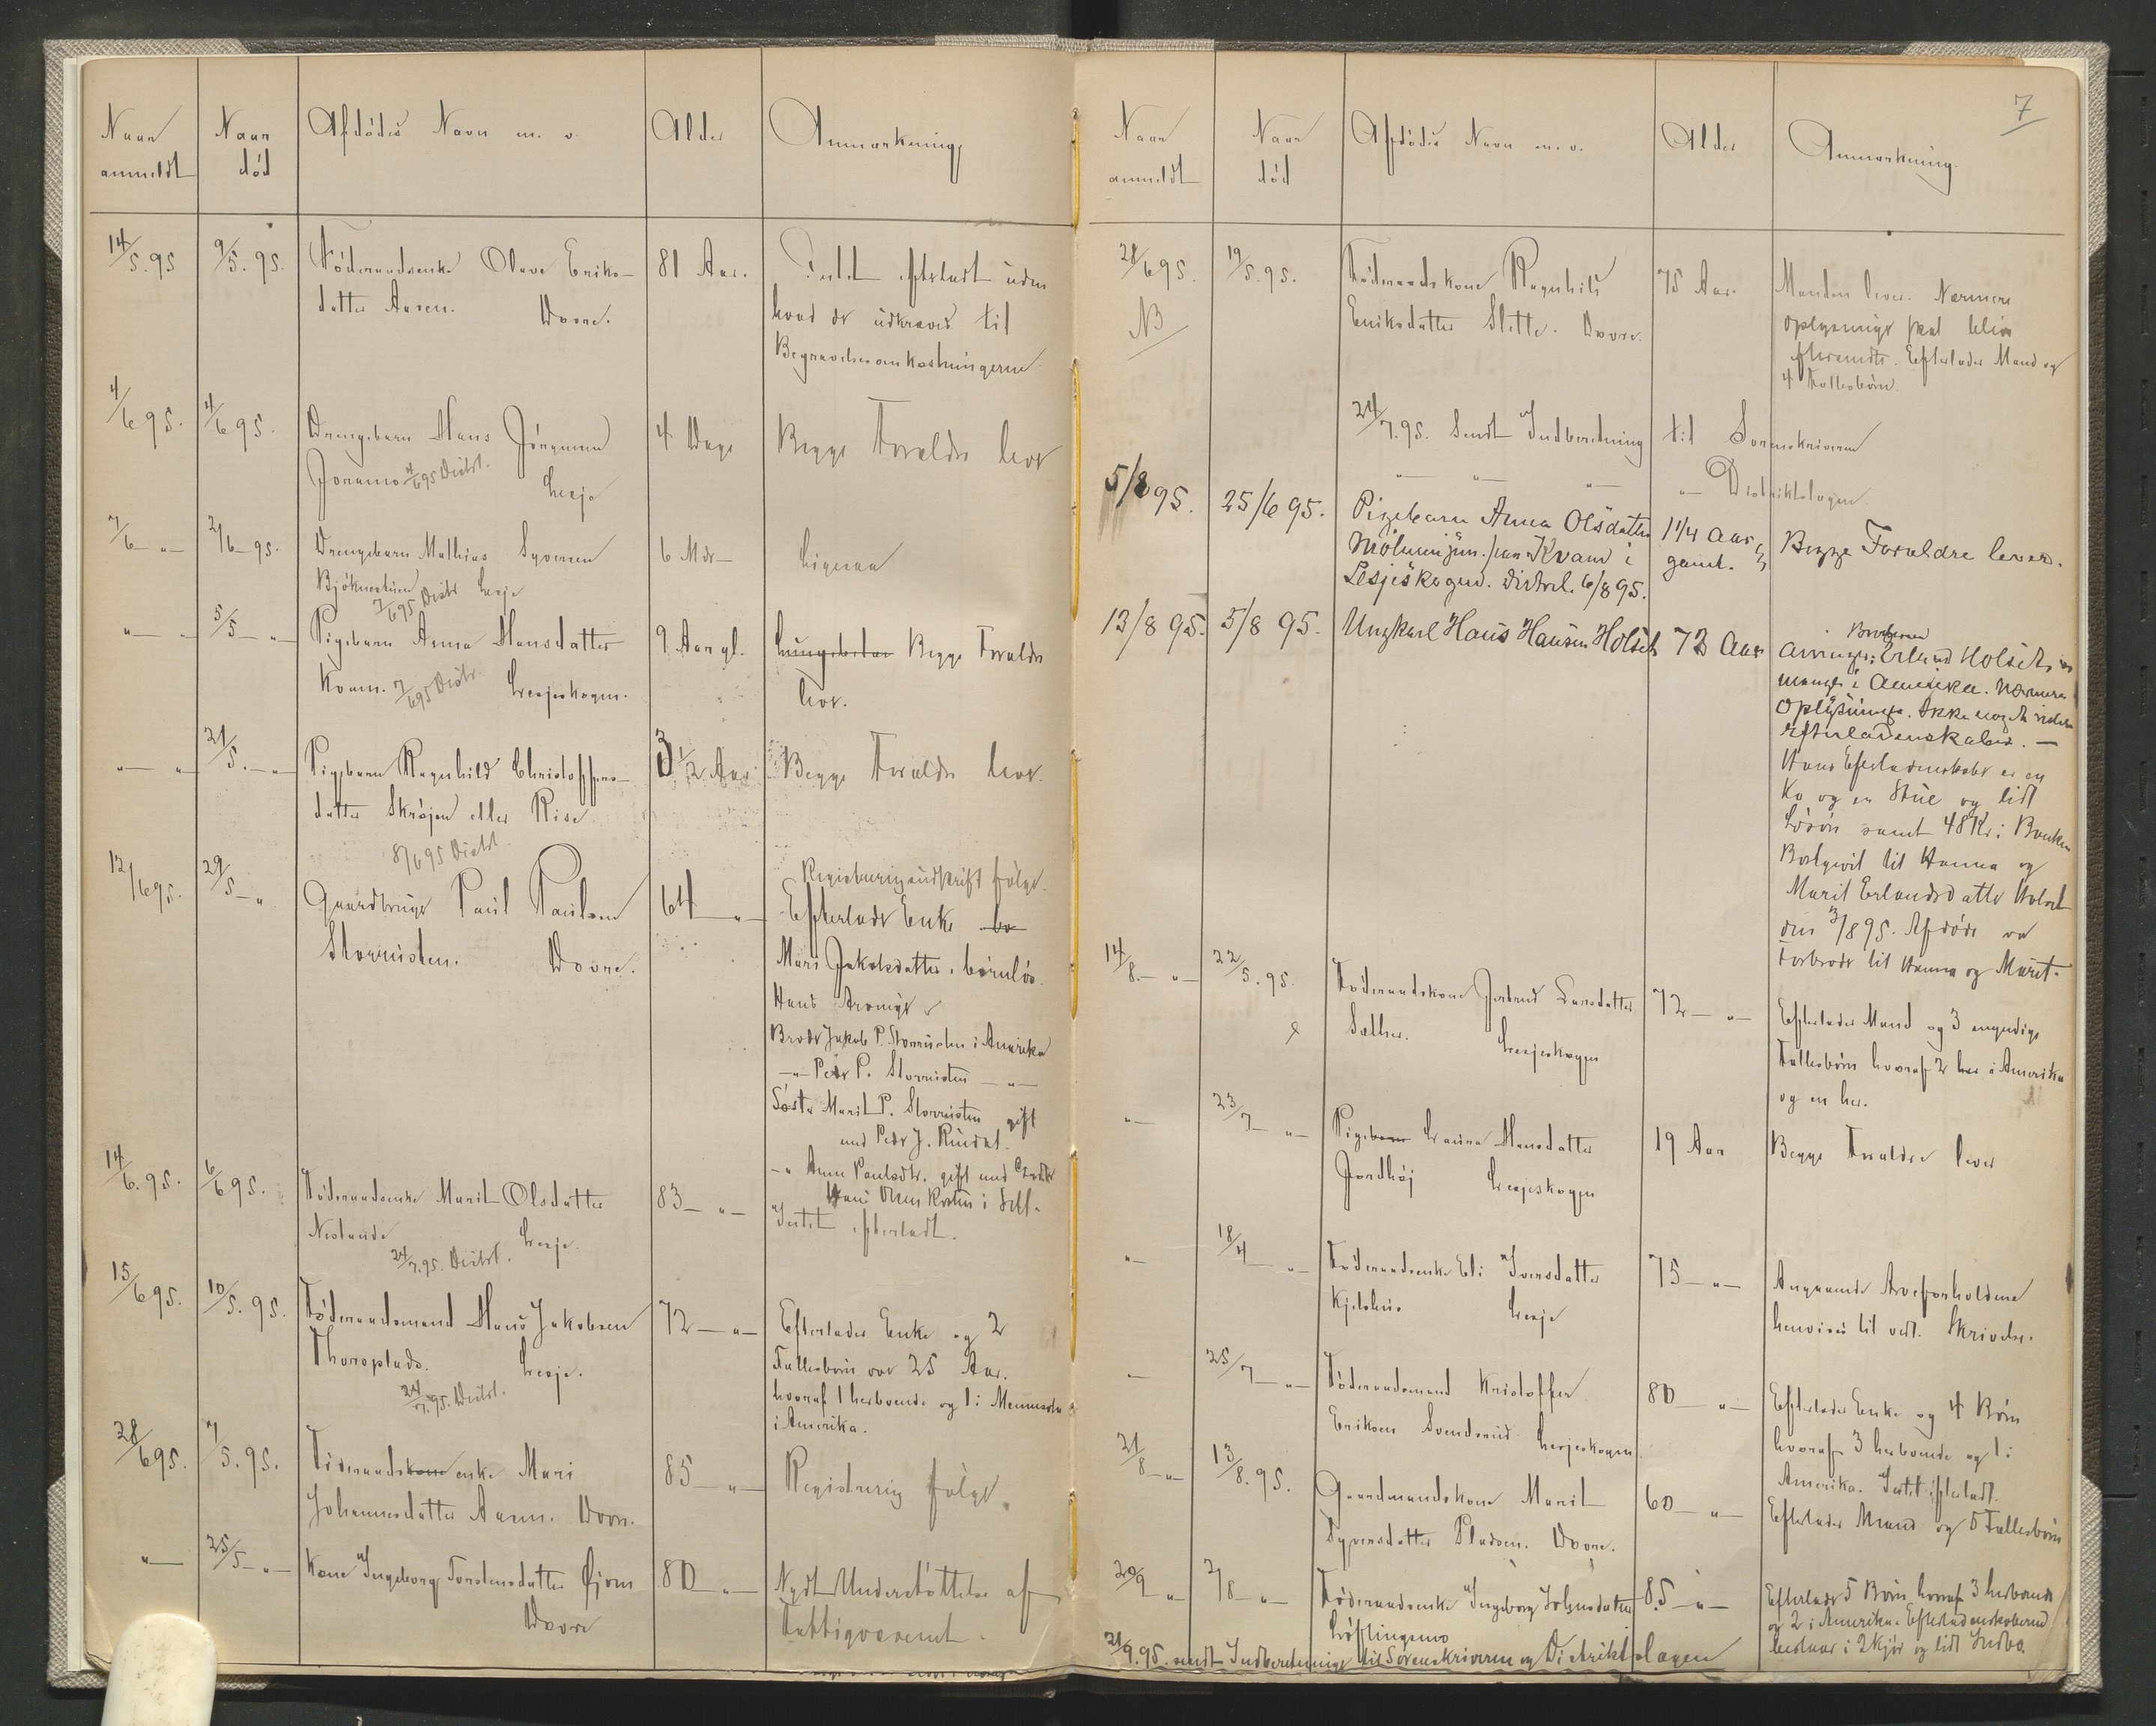 Naar anmeldt | Naar død | Afdødes Navn m. v. | Alder | Anmærkning
14/5.95 | 9/5.95. | Föderaadsenke Olave Eriks- | 81 Aar. | Intet efterladt uden
datter Aasen. Dovre. | hvad der udkræves til
Begravelsesomkostningerne.
4/6 95. | 4/6 95. | Drengebarn Hans Jörgensen | 4 Dage | Begge Forældre lever
Joramo 4/6 95 Distrl. Lesje
7/6 -"- | 2/6-95. | Drengebarn Mathias Syversen | 6 Mdr | Ligesaa
Bjökne
7/6 95 Distr Lesje
-"- | 5/5 -"- | Pigebarn Anna Hansdatter | 9 Aar gl. | Begge Forældre
Kvam. 7/6 95 Distr. Lesjeskogen. | lever.
-"- | 21/5.-"- | Pigebarn Ragnhild Christoffers- | 3 1/2 Aar | Begge Forældre lever.
datter Skröjen eller Rise
8/6 95 Distrl.
12/6 95. | 29/5-" | Registreringsudskrift følger.
Gaardbruger Paul Paulsen | 64 -"- | Efterlader Enke
Storrusten. Dovre. | Mari Jakobsdatter, barnløs.
Hans Arvinger er
Broder Jakob P. Storrusten i Amerika
-"- Peder P. Storrusten -"-
Søster Marit P. Storrusten gift
med Peder J. Rudst.
-" Anne Paulsdtr. gift med
Hans Olsen i Sell.
14/6.95. | 6/6 95. | Föderaadsenke Marit Olsdatter | 83 -"- | Intet efterladt.
Neslande
24/7.95. Distrl. Lesje.
15/6 95. | 10/5.95. | Föderaadsmand Hans Jakobsen | 72 -"- | Efterlader Enke og 2
Thorsplads. Lesje. | Fællesbörn over 25 Aar.
24/7.95. Distrl. | hvoraf 1 herboende og 1 i
i Amerika.
28/6 95. | 7/5.95. | Föderaadskone enke Mari | 85 -"- | Registrering følger.
Johannesdatter Aasen. Dovre.
-"- | 25/5 -"- | Kone Ingeborg Torstensdatter Öjom | 80 -"- | Nydt Understøttelse af
Dovre | Fattigvæsenet.
7
Naar anmeldt | Naar død | Afdødes Navn m. v. | Alder | Anmærkning.
28/6 95. | 19/5.95. | Föderaadskone Ragnhild | 75 Aar. | Manden lever. Nærmere
NB | Eriksdatter Slette. Dovre. | oplysninger skal blive
eftersendte. Efterlader Mand og
4 Fællesbörn.
24/7.95. Sendt Indberetning til Sorenskriveren
-"- -"- -"- -"- Distriktslægen.
5/8 95. | 25/6 95. | Pigebarn Anna Olsdatter | 1 1/4 Aar | Begge Forældre lever.
Mölmeijen. paa Kvam i | gamt.
Lesjeskogen. Distrl. 6/8 95.
13/8 95. | 5/8 95. | Ungkarl Hans Hansen Holset | 73 Aar | Broderen
Arvinger: Erland Holset
mange i Amerika. Nærmere
Oplysninger. Ikke noget videre
Efterladenskaber. —
Hans Efterladenskaber er en
Ko og en Stue og lidt
Løsøre samt 48 Kr. i Banken
Bortgivet til Hanna og
Marit Erlandsdatter Holset
den 3/8 95. Afdøde var
Farbroder til Hanna og Marit.
14/8.-"- | 22/5.95. | Föderaadskone Jertrud Larsdatter | 72 -"- | Efterlader Mand og 3 myndige
Sælher. Lesjeskogen | Fællesbörn hvoraf 2 her i Amerika
og en her.
-"- | 23/7 -"- | Pigebarn Laura Hansdatter | 19 Aar | Begge Forældre lever
Jordhöj Lesjeskogen
-"- | 18/4 -"- | Föderaadsenke Eli Iversdatter | 75 -"- | Angaaende Arveforholdene
Kjelshus Lesje | henvises til vedl. Skrivelse.
-"- | 25/7 -"- | Föderaadsmand Kristoffer | 80 -"- | Efterlader Enke og 4 Börn
Eriksen Svendsrud Lesjeskogen | hvoraf 3 herboende og 1 i
Amerika. Intet efterladt.
21/8 -"- | 13/8.95. | Gaardmandskone Marit | 60 -"- | Efterlader Mand og 5 Fællesbörn
Syversdatter Pladsen. Dovre.
20/9 -"- | 2/8 -"- | Föderaadsenke Ingeborg Johnsdatter | 85 -"- | Efterlader 5 Börn hvoraf 3 herboende
Löftingsmo | og 2 i Amerika. Efterladenskaberne
bestaar i 2 Kjør og lidt Indbo.
21/9.95. sendt Indberetninger til Sorenskriveren og Distriktslægen